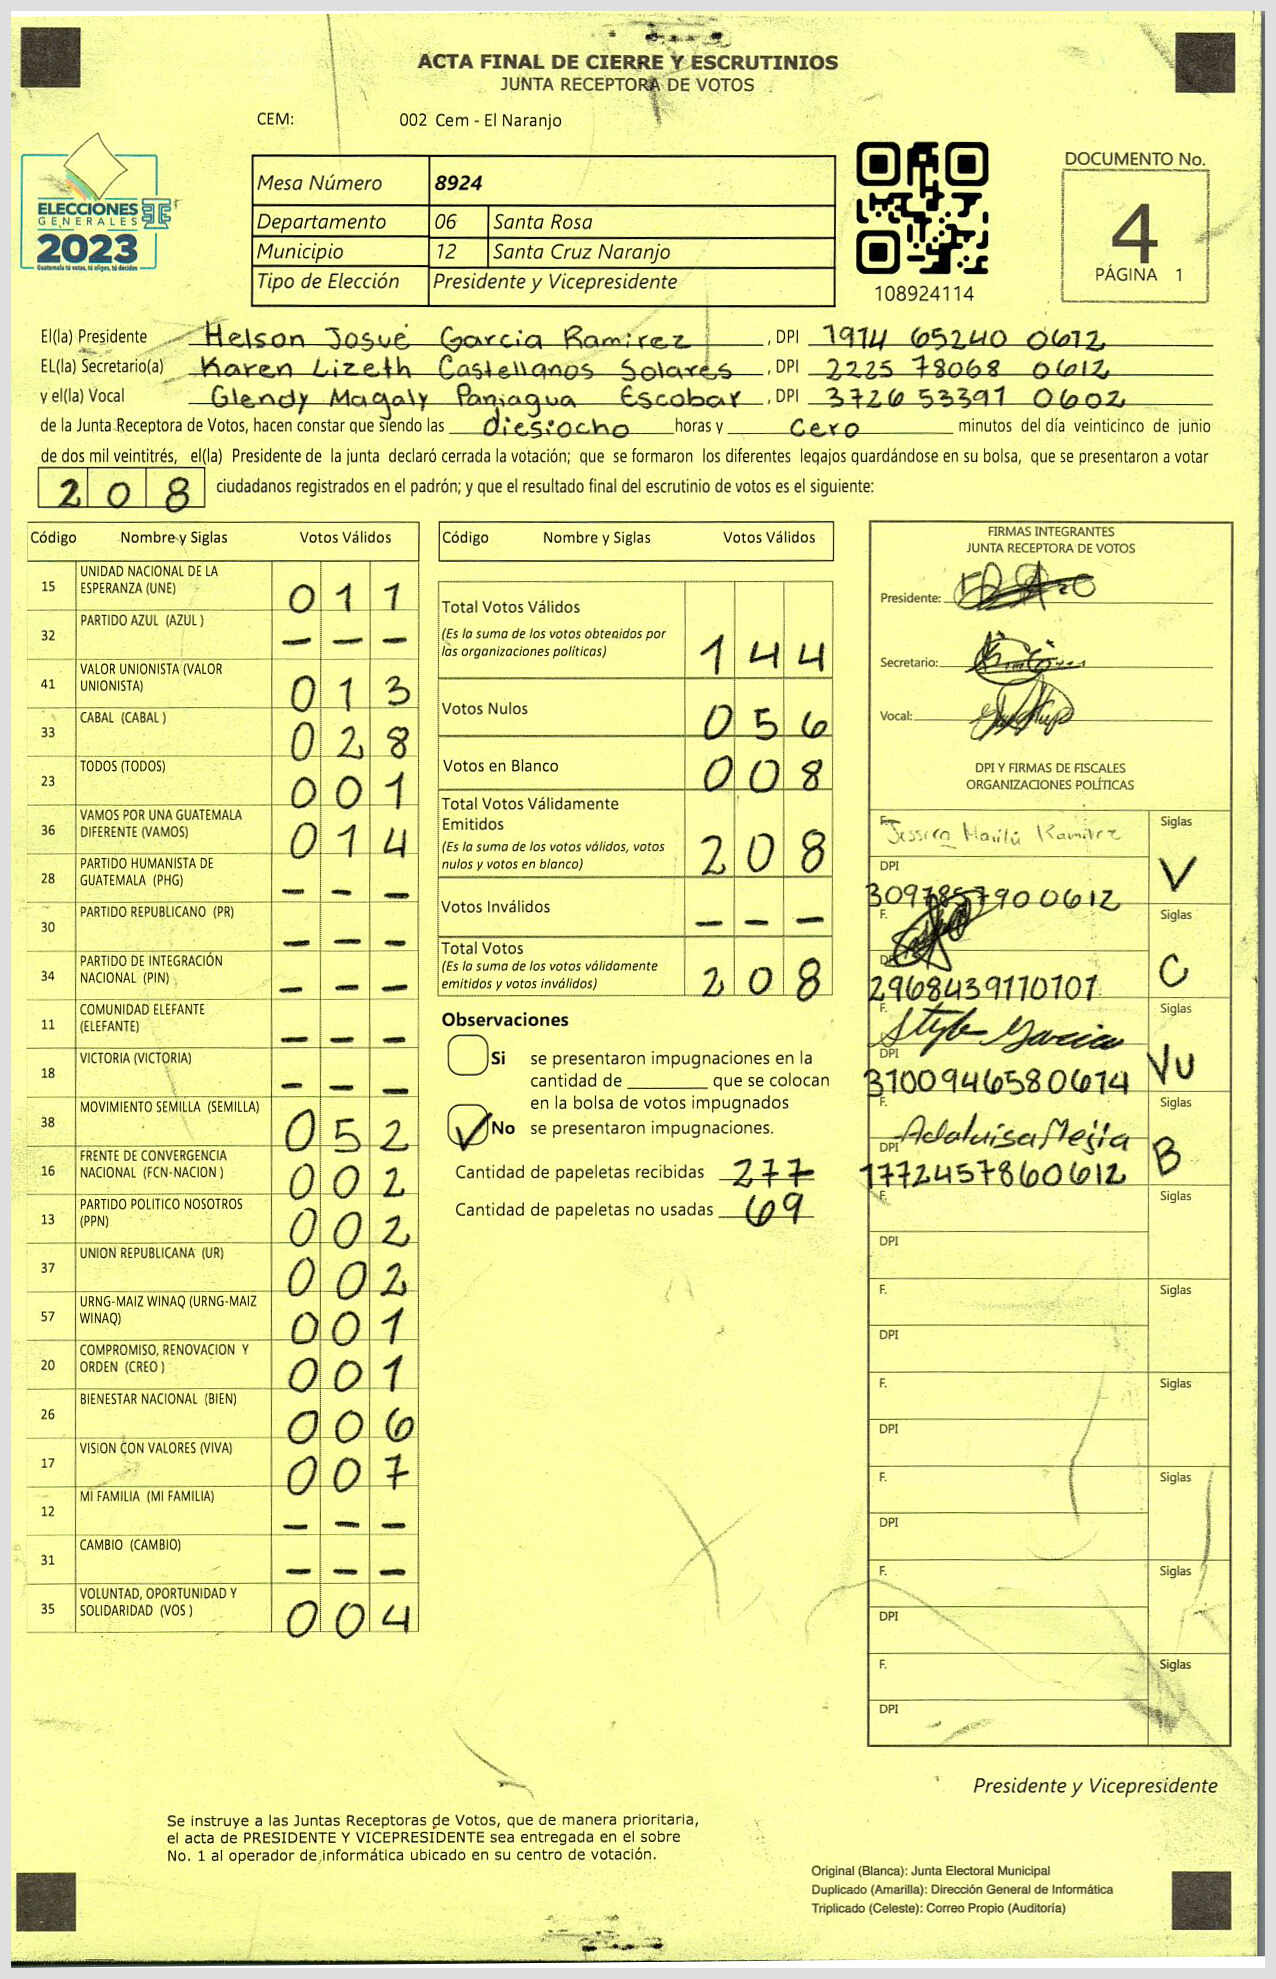 ACTA FINAL DE CIERRE Y ESCRUTINIOS
JUNTA RECEPTORA DE VOTOS
CEM: 002 Cem - El Naranjo
ELECCIONES
GENERALES
2023
Guatemala tú votas, tú eliges, tú decides
Mesa Número 8924
Departamento 06 Santa Rosa
Municipio 12 Santa Cruz Naranjo
Tipo de Elección Presidente y Vicepresidente
108924114
DOCUMENTO No.
4
PÁGINA 1
El(la) Presidente Helson Josué Garcia Ramirez, DPI 1914 65240 0612
EL(la) Secretario(a) Karen Lizeth Castellanos Solares, DPI 2225 78068 0612
y el(la) Vocal Glendy Magaly Paniagua Escobar, DPI 3726 53397 0602
de la Junta Receptora de Votos, hacen constar que siendo las diesiocho horas y Cero minutos del día veinticinco de junio
de dos mil veintitrés, el(la) Presidente de la junta declaró cerrada la votación; que se formaron los diferentes legajos guardándose en su bolsa, que se presentaron a votar
208 ciudadanos registrados en el padrón; y que el resultado final del escrutinio de votos es el siguiente:
Código Nombre y Siglas Votos Válidos
15 UNIDAD NACIONAL DE LA
ESPERANZA (UNE) 011
32 PARTIDO AZUL (AZUL ) - - -
41 VALOR UNIONISTA (VALOR
UNIONISTA) 013
33 CABAL (CABAL ) 028
23 TODOS (TODOS) 001
36 VAMOS POR UNA GUATEMALA
DIFERENTE (VAMOS) 014
28 PARTIDO HUMANISTA DE
GUATEMALA (PHG) - - -
30 PARTIDO REPUBLICANO (PR) - - -
34 PARTIDO DE INTEGRACIÓN
NACIONAL (PIN) - - -
11 COMUNIDAD ELEFANTE
(ELEFANTE) - - -
18 VICTORIA (VICTORIA) - - -
38 MOVIMIENTO SEMILLA (SEMILLA) 052
16 FRENTE DE CONVERGENCIA
NACIONAL (FCN-NACION ) 002
13 PARTIDO POLITICO NOSOTROS
(PPN) 002
37 UNION REPUBLICANA (UR) 002
57 URNG-MAIZ WINAQ (URNG-MAIZ
WINAQ) 001
20 COMPROMISO, RENOVACION Y
ORDEN (CREO ) 001
26 BIENESTAR NACIONAL (BIEN) 006
17 VISION CON VALORES (VIVA) 007
12 MI FAMILIA (MI FAMILIA) - - -
31 CAMBIO (CAMBIO) - - -
35 VOLUNTAD, OPORTUNIDAD Y
SOLIDARIDAD (VOS ) 004
Código Nombre y Siglas Votos Válidos
Total Votos Válidos
(Es la suma de los votos obtenidos por
las organizaciones políticas) 144
Votos Nulos 056
Votos en Blanco 008
Total Votos Válidamente
Emitidos
(Es la suma de los votos válidos, votos
nulos y votos en blanco) 208
Votos Inválidos - - -
Total Votos
(Es la suma de los votos válidamente
emitidos y votos inválidos) 208
Observaciones
Si se presentaron impugnaciones en la
cantidad de ________ que se colocan
en la bolsa de votos impugnados
No se presentaron impugnaciones.
Cantidad de papeletas recibidas 277
Cantidad de papeletas no usadas 69
FIRMAS INTEGRANTES
JUNTA RECEPTORA DE VOTOS
Presidente:
Secretario:
Vocal:
DPI Y FIRMAS DE FISCALES
ORGANIZACIONES POLÍTICAS
F. Jessica Marilú Ramirez Siglas
DPI
3097857900612 V
F. Siglas
DPI
2968439110101 C
F. Siglas
DPI
3100946580614 VU
F. Adaluisa Mejia Siglas
DPI
1772457860612 B
F. Siglas
DPI
F. Siglas
DPI
F. Siglas
DPI
F. Siglas
DPI
F. Siglas
DPI
F. Siglas
DPI
Presidente y Vicepresidente
Se instruye a las Juntas Receptoras de Votos, que de manera prioritaria,
el acta de PRESIDENTE Y VICEPRESIDENTE sea entregada en el sobre
No. 1 al operador de informática ubicado en su centro de votación.
Original (Blanca): Junta Electoral Municipal
Duplicado (Amarilla): Dirección General de Informática
Triplicado (Celeste): Correo Propio (Auditoría)